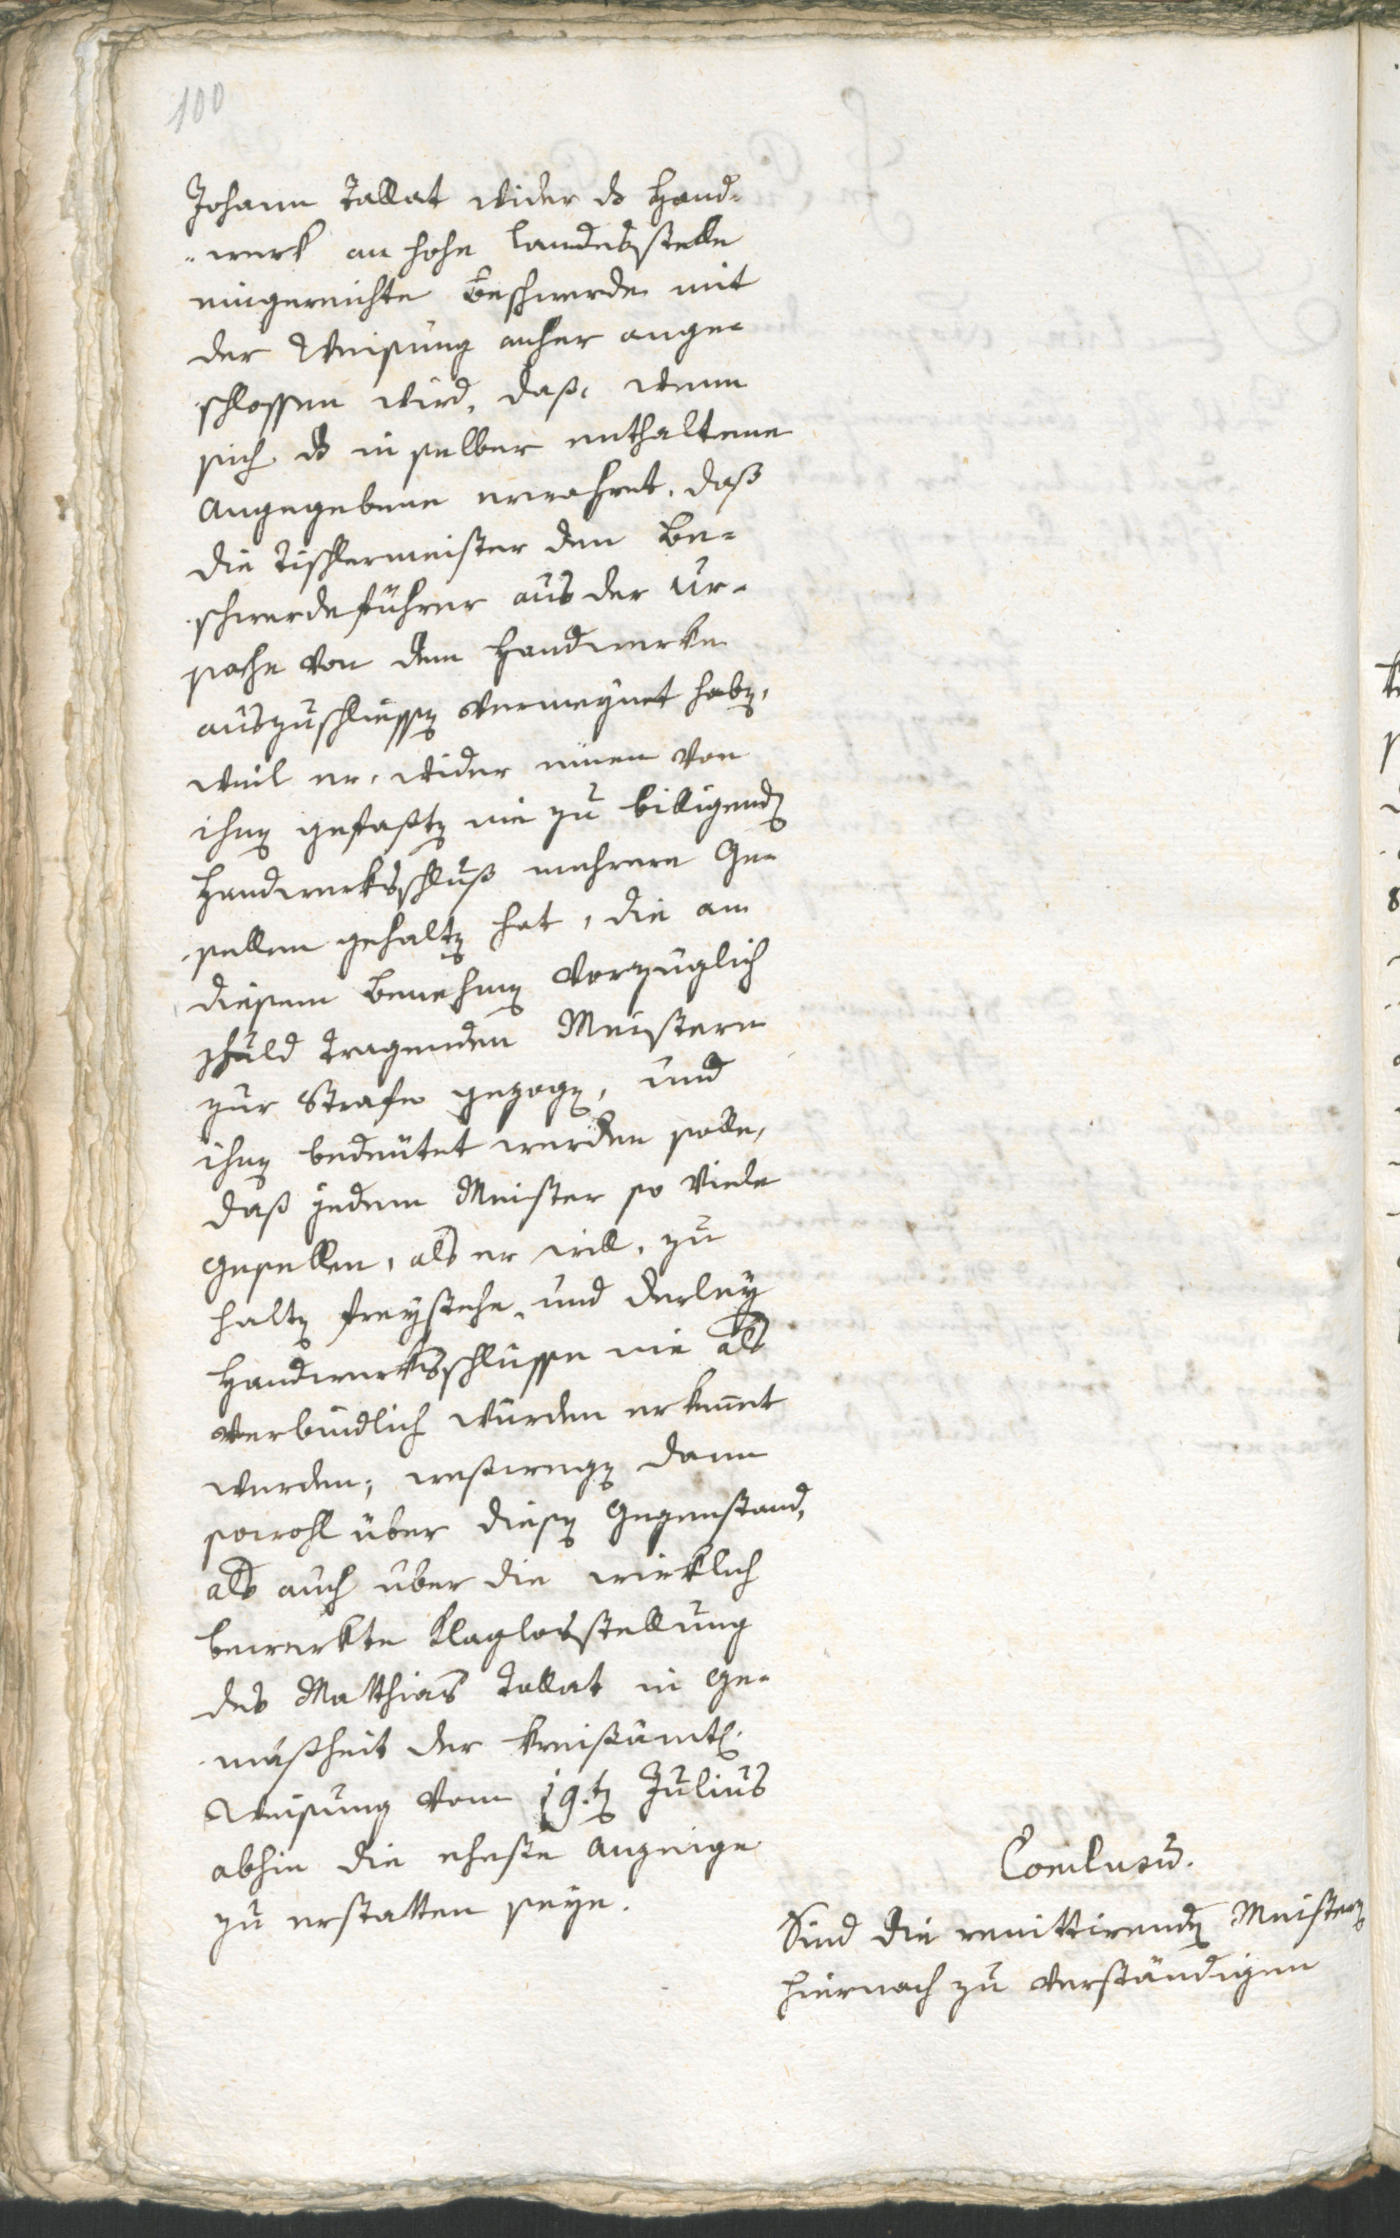 100
Johann Tallat wider ds Hand-
-werk an hohe Landesstelle
eingereichte Beschwerde mit
der Weisung anher ange-
schlossen wird, daß, wenn
sich ds in selber enthaltene
Angegebene erwahret, daß
die Tischlermeister den Be-
schwerdeführer aus der Ur-
sache von dem Handwerke
auszuschliessen vermeynet haben,
weil er, wider einen von
ihnen gefaßten nie zu billigenden
Handwerksschluß mehrere Ge-
sellen gehalten hat, die an
diesem Benehmen vorzüglich
schuld tragenden Meistern
zur Strafe gezogen, und
ihnen bedeutet werden solle,
daß jedem Meister so viele
Gesellen, als er will, zu
halten freystehe, und derley
Handwerksschlüsse nie als
verbindlich würden erkennet
werden; weßwegen dann
sowohl über diesen Gegenstand,
als auch über die wirklich
bewerkte Klaglosstellung
des Matthias Tallat in Ge-
mäßheit der kreisämtl.
Weisung vom 19.ten Julius
abhin die eheste Anzeige
zu erstatten seye.
Conclusu.
Sind die renittirenden Meister
hiernach zu verständigen